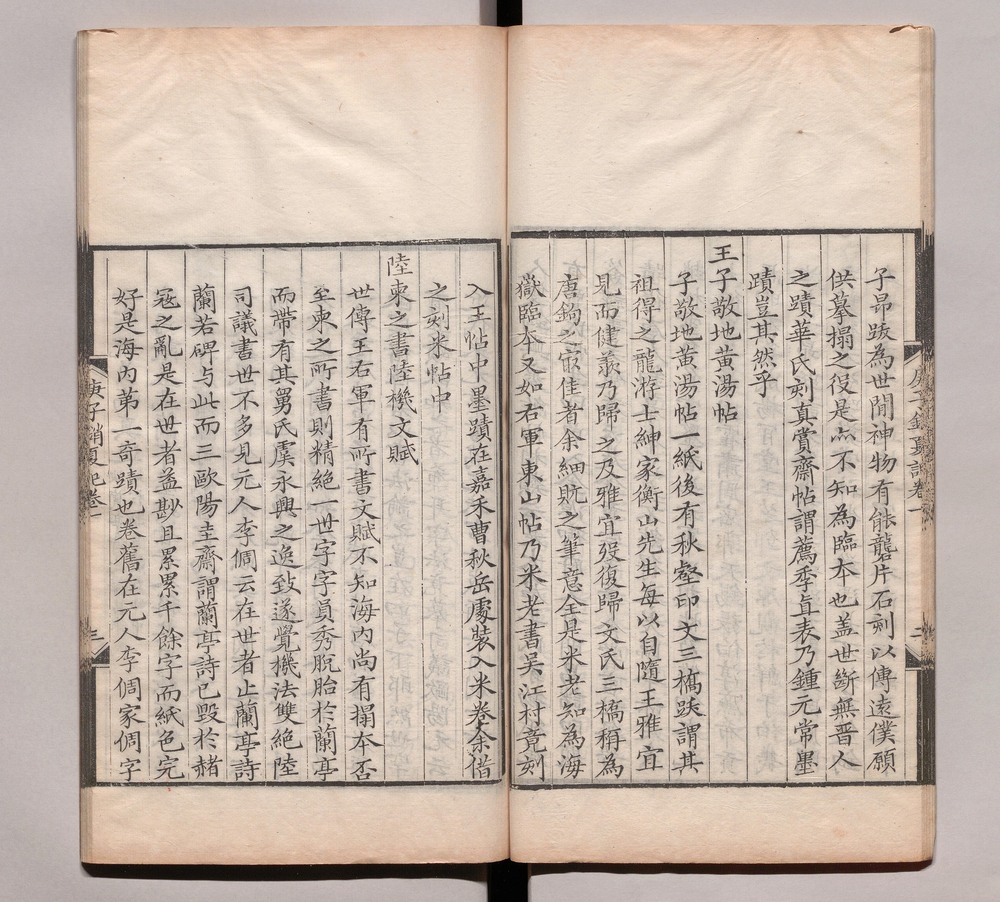 子昂跋為世間神物有能礱片石刻以傳遠僕願
供摹搨之役是亦不知為臨本也盖世斷無晉人
之蹟華氏刻真賞齋帖謂薦季直表乃鍾元常墨
蹟豈其然乎
王子敬地黄湯帖
子敬地黄湯帖一紙後有秋壑印文三橋跋謂其
祖得之龍游士紳家衡山先生每以自隨王雅宜
見而健羨乃歸之及雅宜歿復歸文氏三橋稱為
唐鈎之寂佳者余細翫之筆意全是米老知為海
嶽臨本又如右軍東山帖乃米老書吴江村竟刻
入王帖中墨蹟在嘉禾曹秋岳處裝入米卷余借
之刻米帖中
陸柬之書陸機文賦
世傳王右軍有所書文賦不知海内尚有搨本否
至柬之所書則精絕一世字字員秀脫胎於蘭亭
而帶有其舅氏虞永興之逸致遂覺機法雙絕陸
司議書世不多見元人李倜云在世者止蘭亭詩
蘭若碑与此而三歐陽圭齋謂蘭亭詩已毁於赭
寇之亂是在世者益尠且累累千餘字而紙色完
好是海内第一奇蹟也卷舊在元人李倜家倜字
庚子銷夏記卷一
三